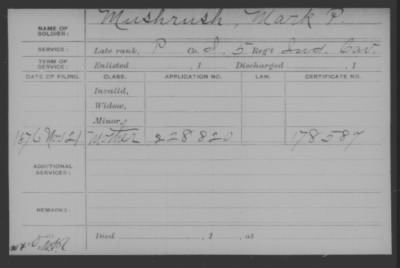 NAME OF SOLDIER: Mushrush, Mark P.
SERVICE: Late rank, P Co. I, 5 Reg't Ind. Cav.
TERM OF SERVICE: Enlisted , 1 Discharged , 1
DATE OF FILING. CLASS. APPLICATION NO. LAW. CERTIFICATE NO.
Invalid,
Widow,
Minor,
1876 Nov 21 Mother 228820 178587
ADDITIONAL SERVICES:
REMARKS:
Died , 1 , at